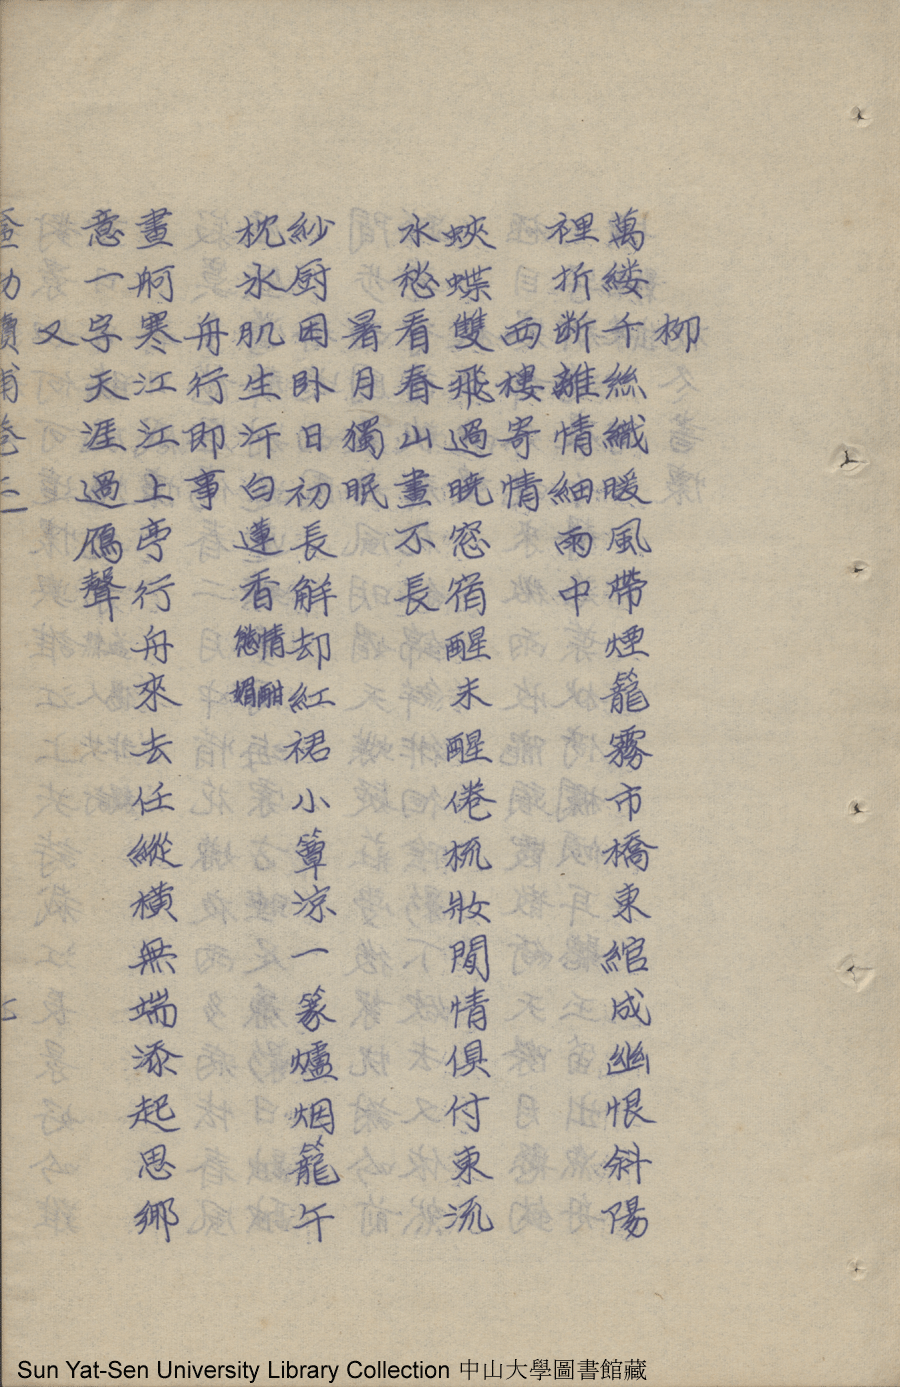 柳
萬縷千絲織暖風帶煙籠霧市橋東綰成幽恨斜陽
裡折断離情細雨中
西樓寄情
蛺蝶雙飛過曉窓宿醒未醒倦梳妝閒情俱付東流
水愁看春山畫不長
暑月獨眠
紗厨困卧日初長解却紅裙小簟涼一篆爐烟籠午
枕水肌生汗白蓮香情酣慈娟
舟行即事
畫舸寒江江上亭行舟來去任縱橫無端添起思鄉
意一字天涯過鴈聲
又
卷二
七
Sun Yat-Sen University Library Collection 中山大學圖書館藏